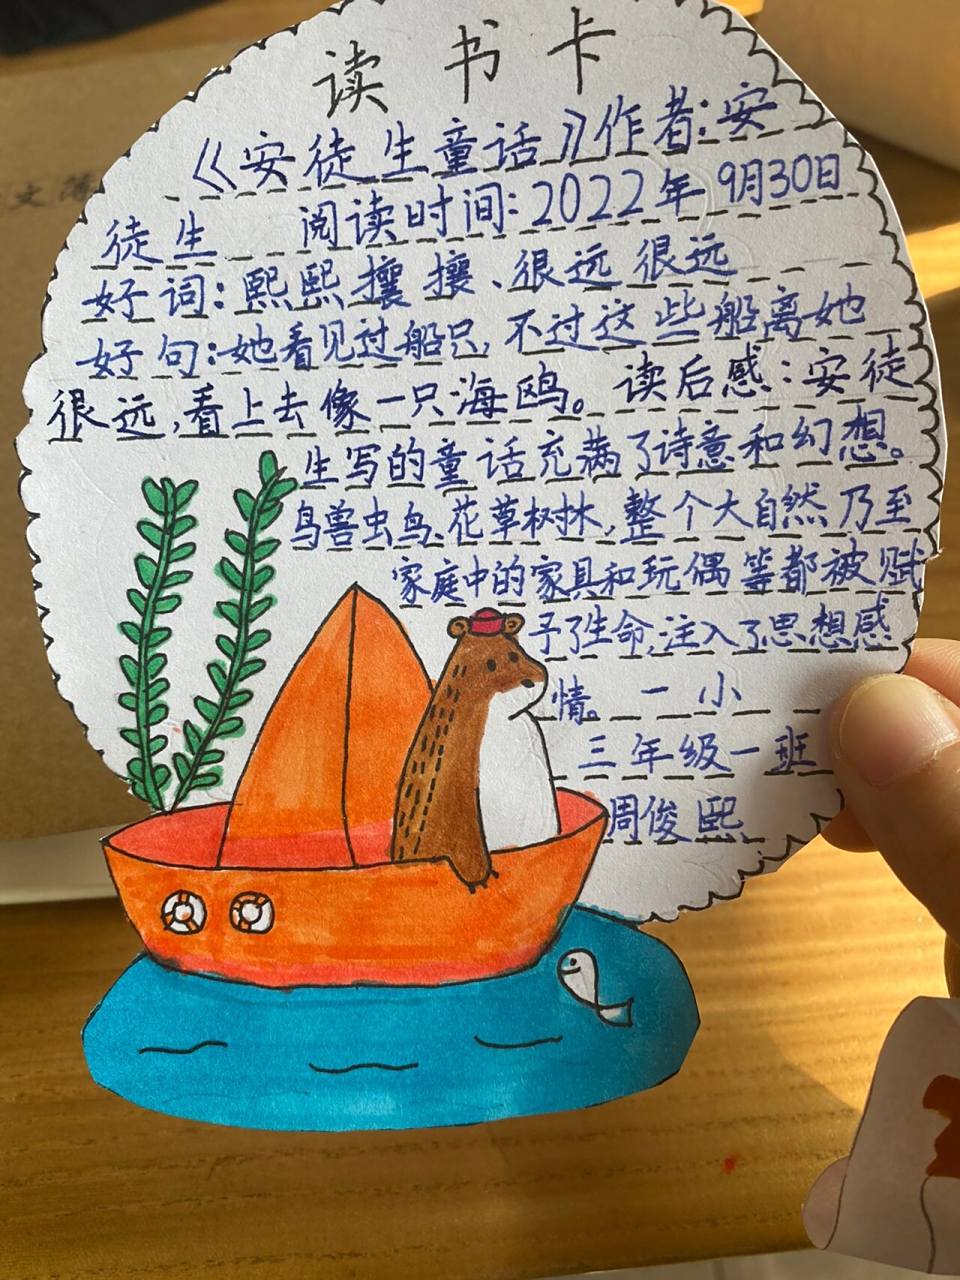 读书卡
《安徒生童话》作者:安
徒生 阅读时间:2022年9月30日
好词:熙熙攘攘、很远很远
好句:她看见过船只,不过这些船离她
很远,看上去像一只海鸥。读后感:安徒
生写的童话充满了诗意和幻想。
鸟兽虫鸟、花草树林,整个大自然乃至
家庭中的家具和玩偶等都被赋
予了生命,注入了思想感
情。 一小
三年级一班
周俊熙
文薄